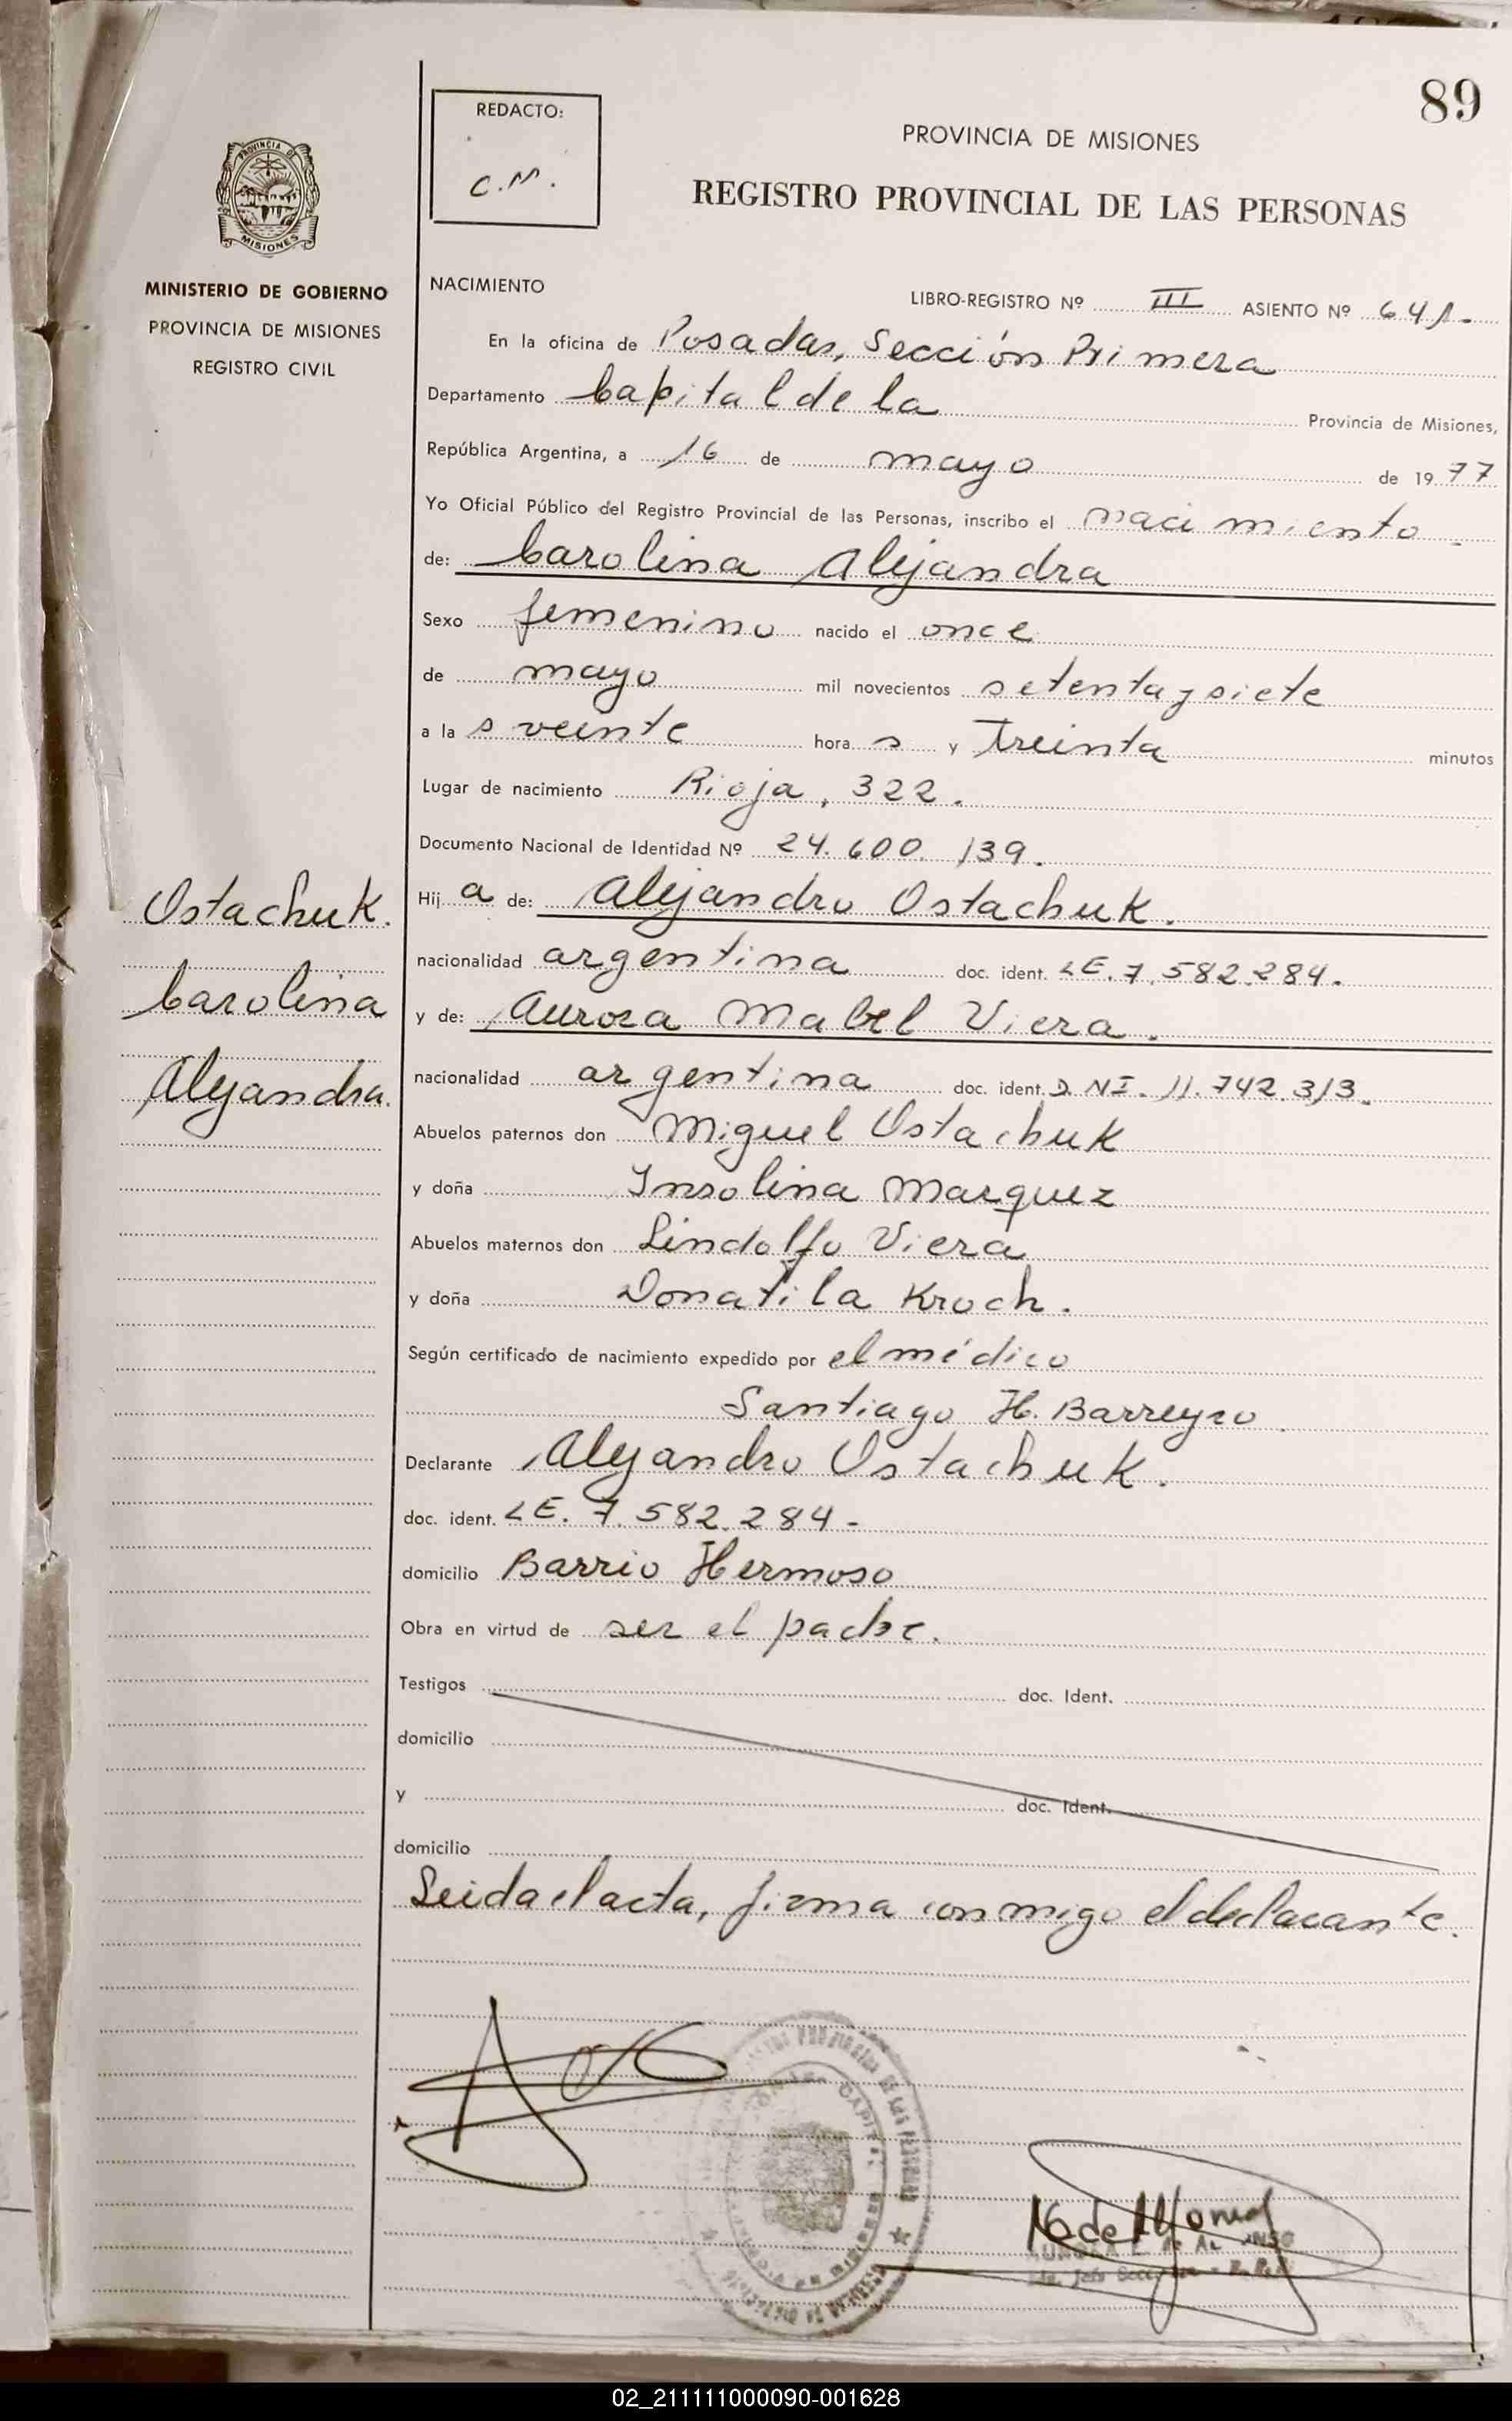 89
REDACTO:
C.M.
PROVINCIA DE MISIONES
REGISTRO PROVINCIAL DE LAS PERSONAS
PROVINCIA DE
MISIONES
MINISTERIO DE GOBIERNO
PROVINCIA DE MISIONES
REGISTRO CIVIL
NACIMIENTO
LIBRO-REGISTRO Nº III ASIENTO Nº 641.-
En la oficina de Posadas, Sección Primera
Departamento Capital de la Provincia de Misiones,
República Argentina, a 16 de mayo de 1977
Yo Oficial Público del Registro Provincial de las Personas, inscribo el nacimiento
de: Carolina Alejandra
Sexo femenino nacido el once
de mayo mil novecientos setenta y siete
a las veinte horas y treinta minutos
Lugar de nacimiento Rioja, 322.
Documento Nacional de Identidad Nº 24.600.139.
Hija de: Alejandro Ostachuk.
nacionalidad argentina doc. ident. LE. 7.582.284.
y de: Aurora Mabel Viera.
nacionalidad argentina doc. ident. D.NI. 11.742.313.
Abuelos paternos don Miguel Ostachuk
y doña Insolina Marquez
Abuelos maternos don Lindolfo Viera
y doña Donatila Kroch.
Según certificado de nacimiento expedido por el médico
Santiago H. Barreyro
Declarante Alejandro Ostachuk.
doc. ident. LE. 7.582.284-
domicilio Barrio Hermoso
Obra en virtud de ser el padre.
Testigos doc. Ident.
domicilio
y doc. Ident.
domicilio
Leida el acta, firma conmigo el declarante.
Ostachuk.
Carolina
Alejandra.
02_211111000090-001628